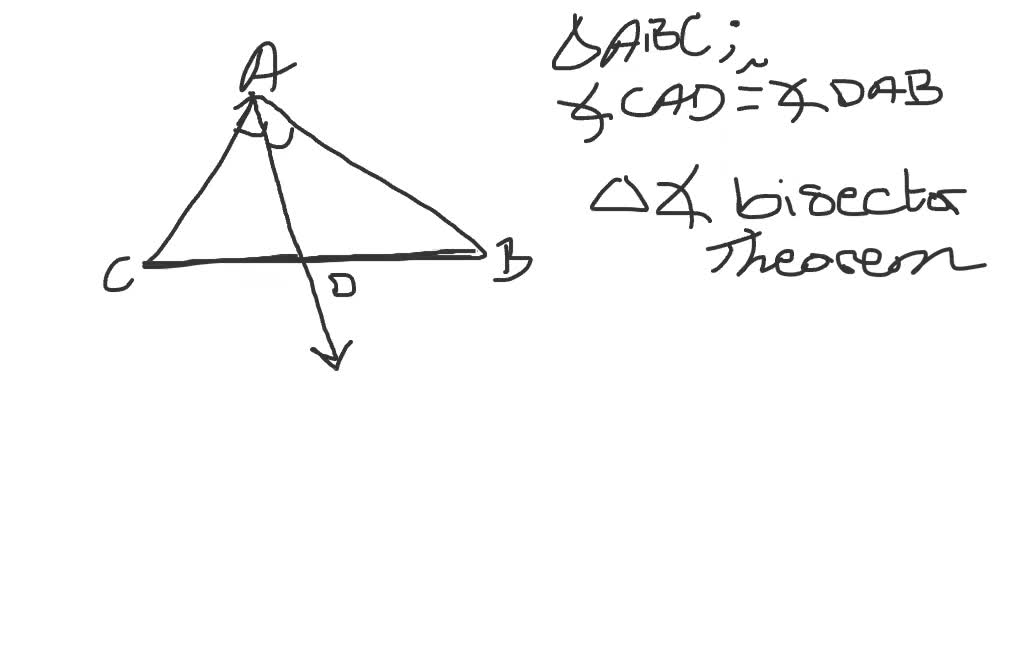 A
C
D
B
△ABC;
∡CAD ≅ ∡DAB
△∡ bisector
Theorem